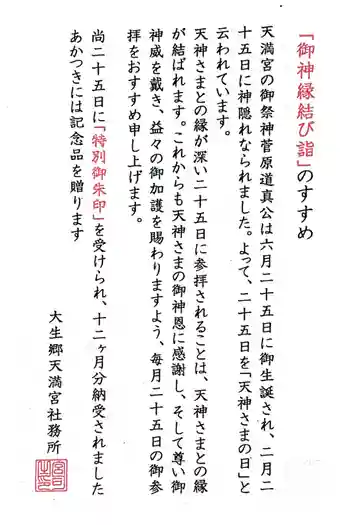 「御神縁結び詣」のすすめ
天満宮の御祭神菅原道真公は六月二十五日に御生誕され、二月二
十五日に神隠れなられました。よって、二十五日を「天神さまの日」と
云われています。
天神さまとの縁が深い二十五日に参拝されることは、天神さまとの縁
が結ばれます。これからも天神さまの御神恩に感謝し、そして尊い御
神威を戴き、益々の御加護を賜わりますよう、毎月二十五日の御参
拝をおすすめ申し上げます。
尚二十五日に「特別御朱印」を受けられ、十二ヶ月分納受されました
あかつきには記念品を贈ります
大生郷天満宮社務所